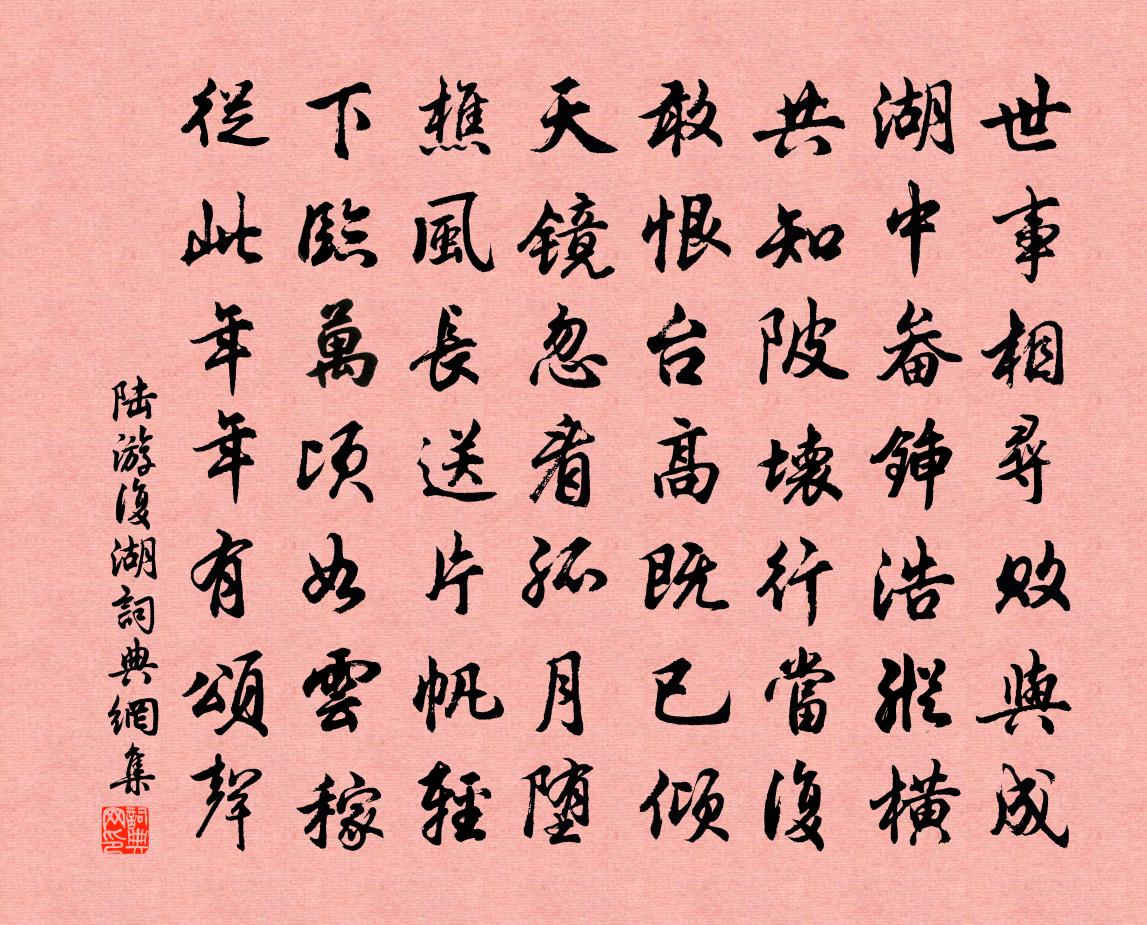 世事相尋敗與成
湖中畚鍤浩縱橫
共知陂壞行當復
敢恨台高既已傾
天鏡忽看孤月墮
樵風長送片帆輕
下臨萬頃如雲稼
從此年年有頌聲
陆游復湖詞典網集
詞典网印